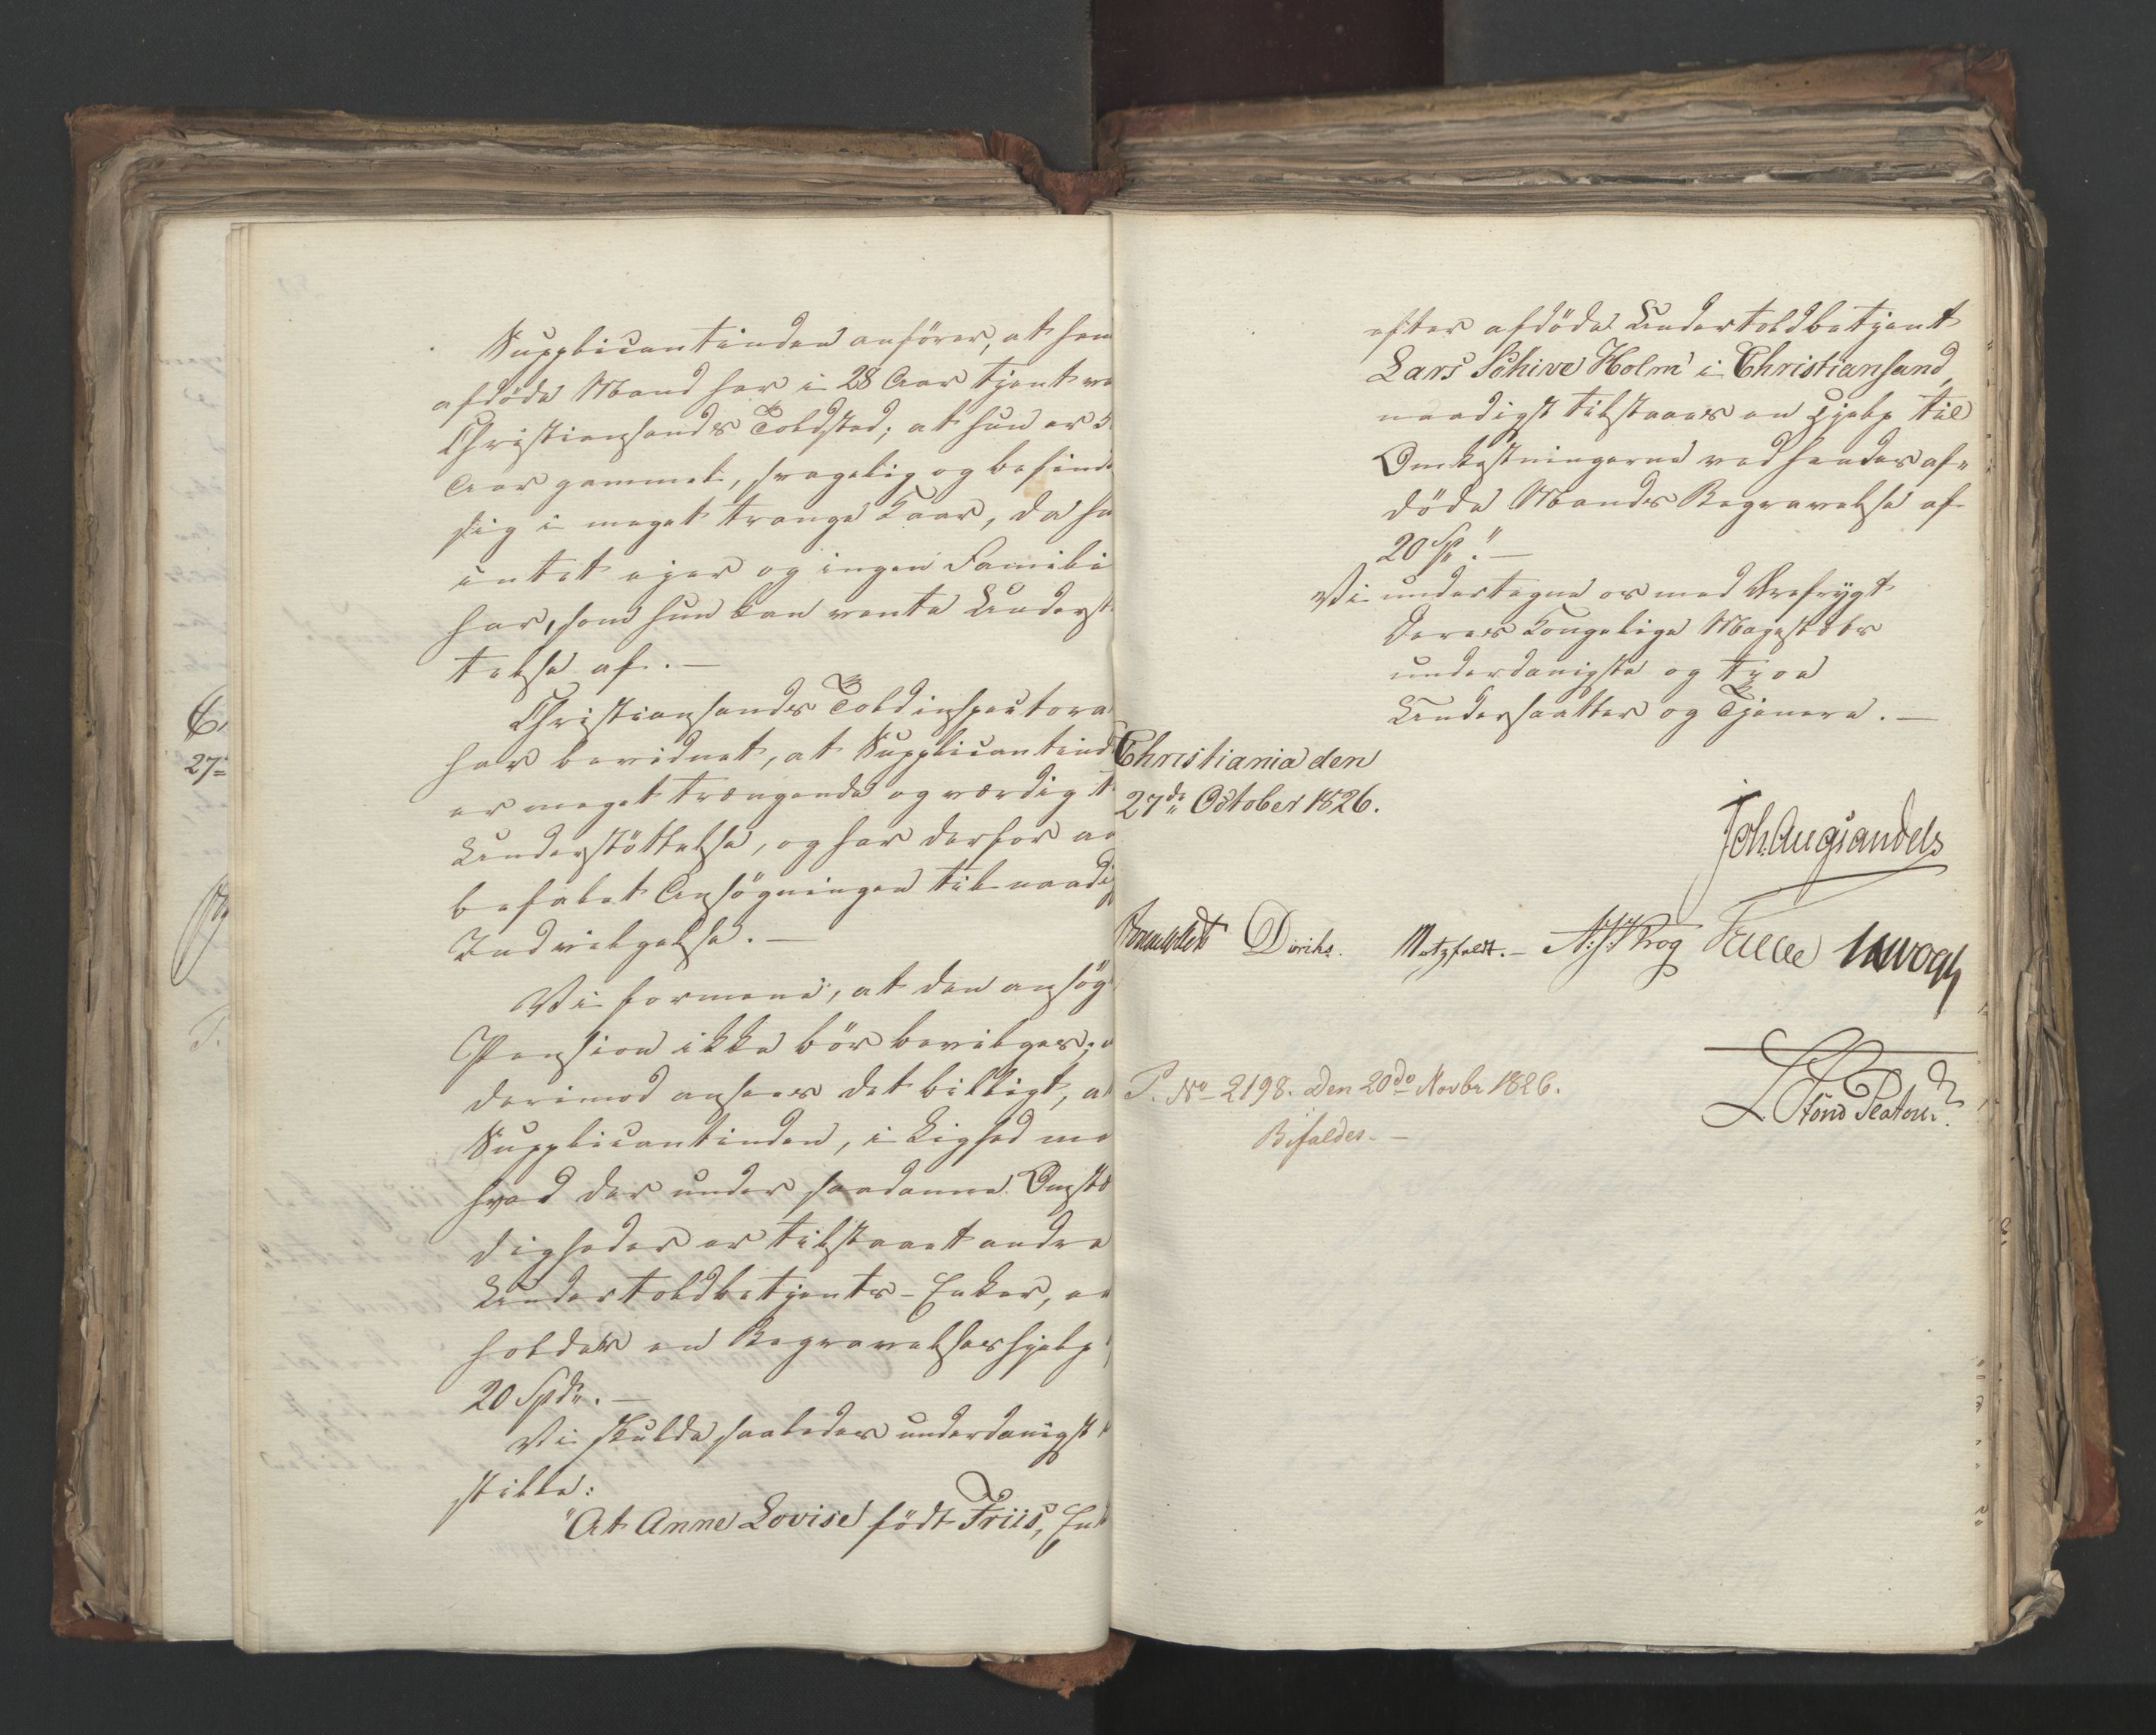 Supplicantinden anförer, at hen
afdöde Mand har i 28 Aar tjent ve
Christiansands Toldsted; at hun er 5
Aar gammel, svagelig og befinde
sig i meget trange Kaar, da hu
intet ejer og ingen Famili
har, som hun kan vente Underst
telse af. —
Christiansands Toldinspecteur
har bevidnet, at Supplicantind
er meget trængende og værdig t
Understöttelse, og har derfor an
befalet Ansögningen til naadig
Indvilgelse. —
Vi formene, at den ansög
Pension ikke bör bevilges;
derimod ansees det billigt, at
Supplicantinden, i Lighed me
hvad der under saadanne Omstæ
digheder er tilstaaet andre
Undertoldbetjents-Enker, er
holder en Begravelseshjelp
20 Spd. —
Vi skulde saaledes underdanigst
stille:
"At Anne Lovise födt Friis, Enke
efter afdöde Undertoldbetjent
Lars Schive Holm i Christiansand,
naadigst tilstaaes en Hjelp til
Omkostningerne ved hendes af„
döde Mands Begravelse af
20 Sp." —
Vi undertegne os med Ærefrygt
Deres Kongelige Majestæts
underdanigste og troe
Undersaatter og Tjenere. —
Christiania den
27de October 1826.
Joh. Aug Sandels
Diriks. Motzfeldt. — Krog Falbe
P. No 2198. Den 20de Novbr 1826.
Bifaldes. —